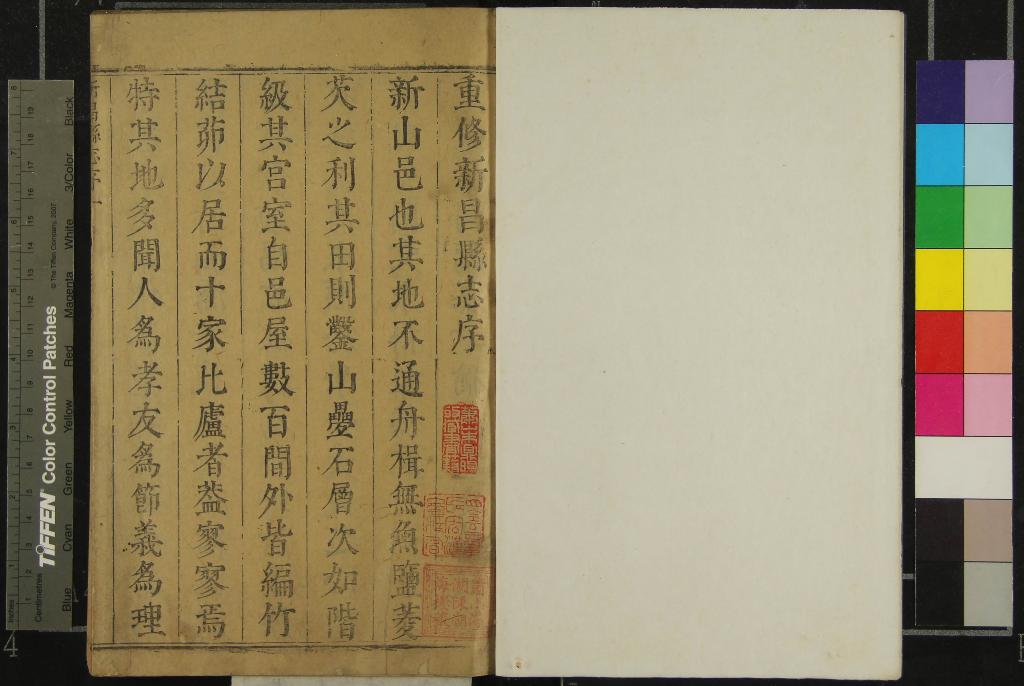 重修新昌縣志序
新山邑也其地不通舟楫無魚鹽菱
芡之利其田則鑿山疊石層次如階
級其宮室自邑屋數百間外皆編竹
結茆以居而十家比廬者葢寥寥焉
特其地多聞人為孝友為節義為理
新昌縣志序一
TIFFEN Color Control Patches
© The Tiffen Company, 2007
Inches
Centimetres
Blue Cyan Green Yellow Red Magenta White 3/Color Black